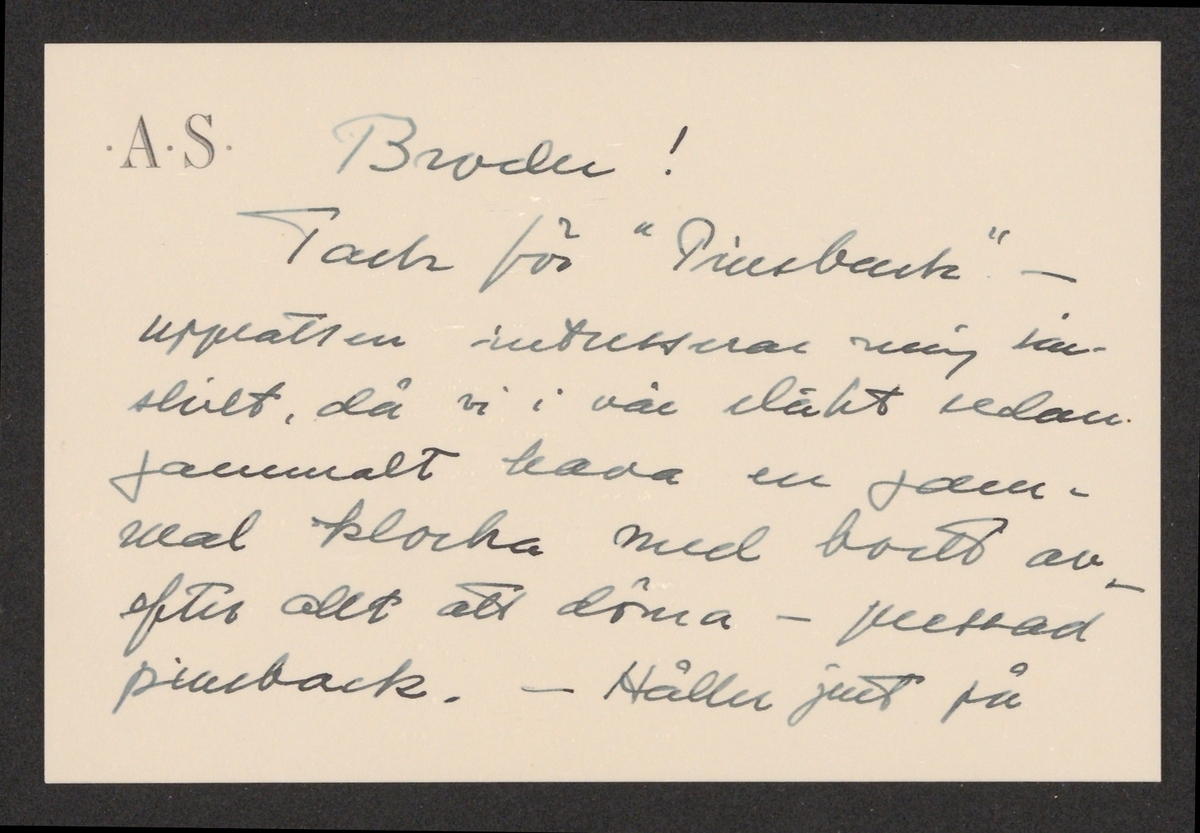 ·A·S·
Broder!
Tack för "Pinsback" —
uppsatsen intresserar mig sär-
skilt, då vi i vår släkt sedan
gammalt hava en gam-
mal klocka med boett av —
efter allt att döma — pressad
pinsback. — Håller just på